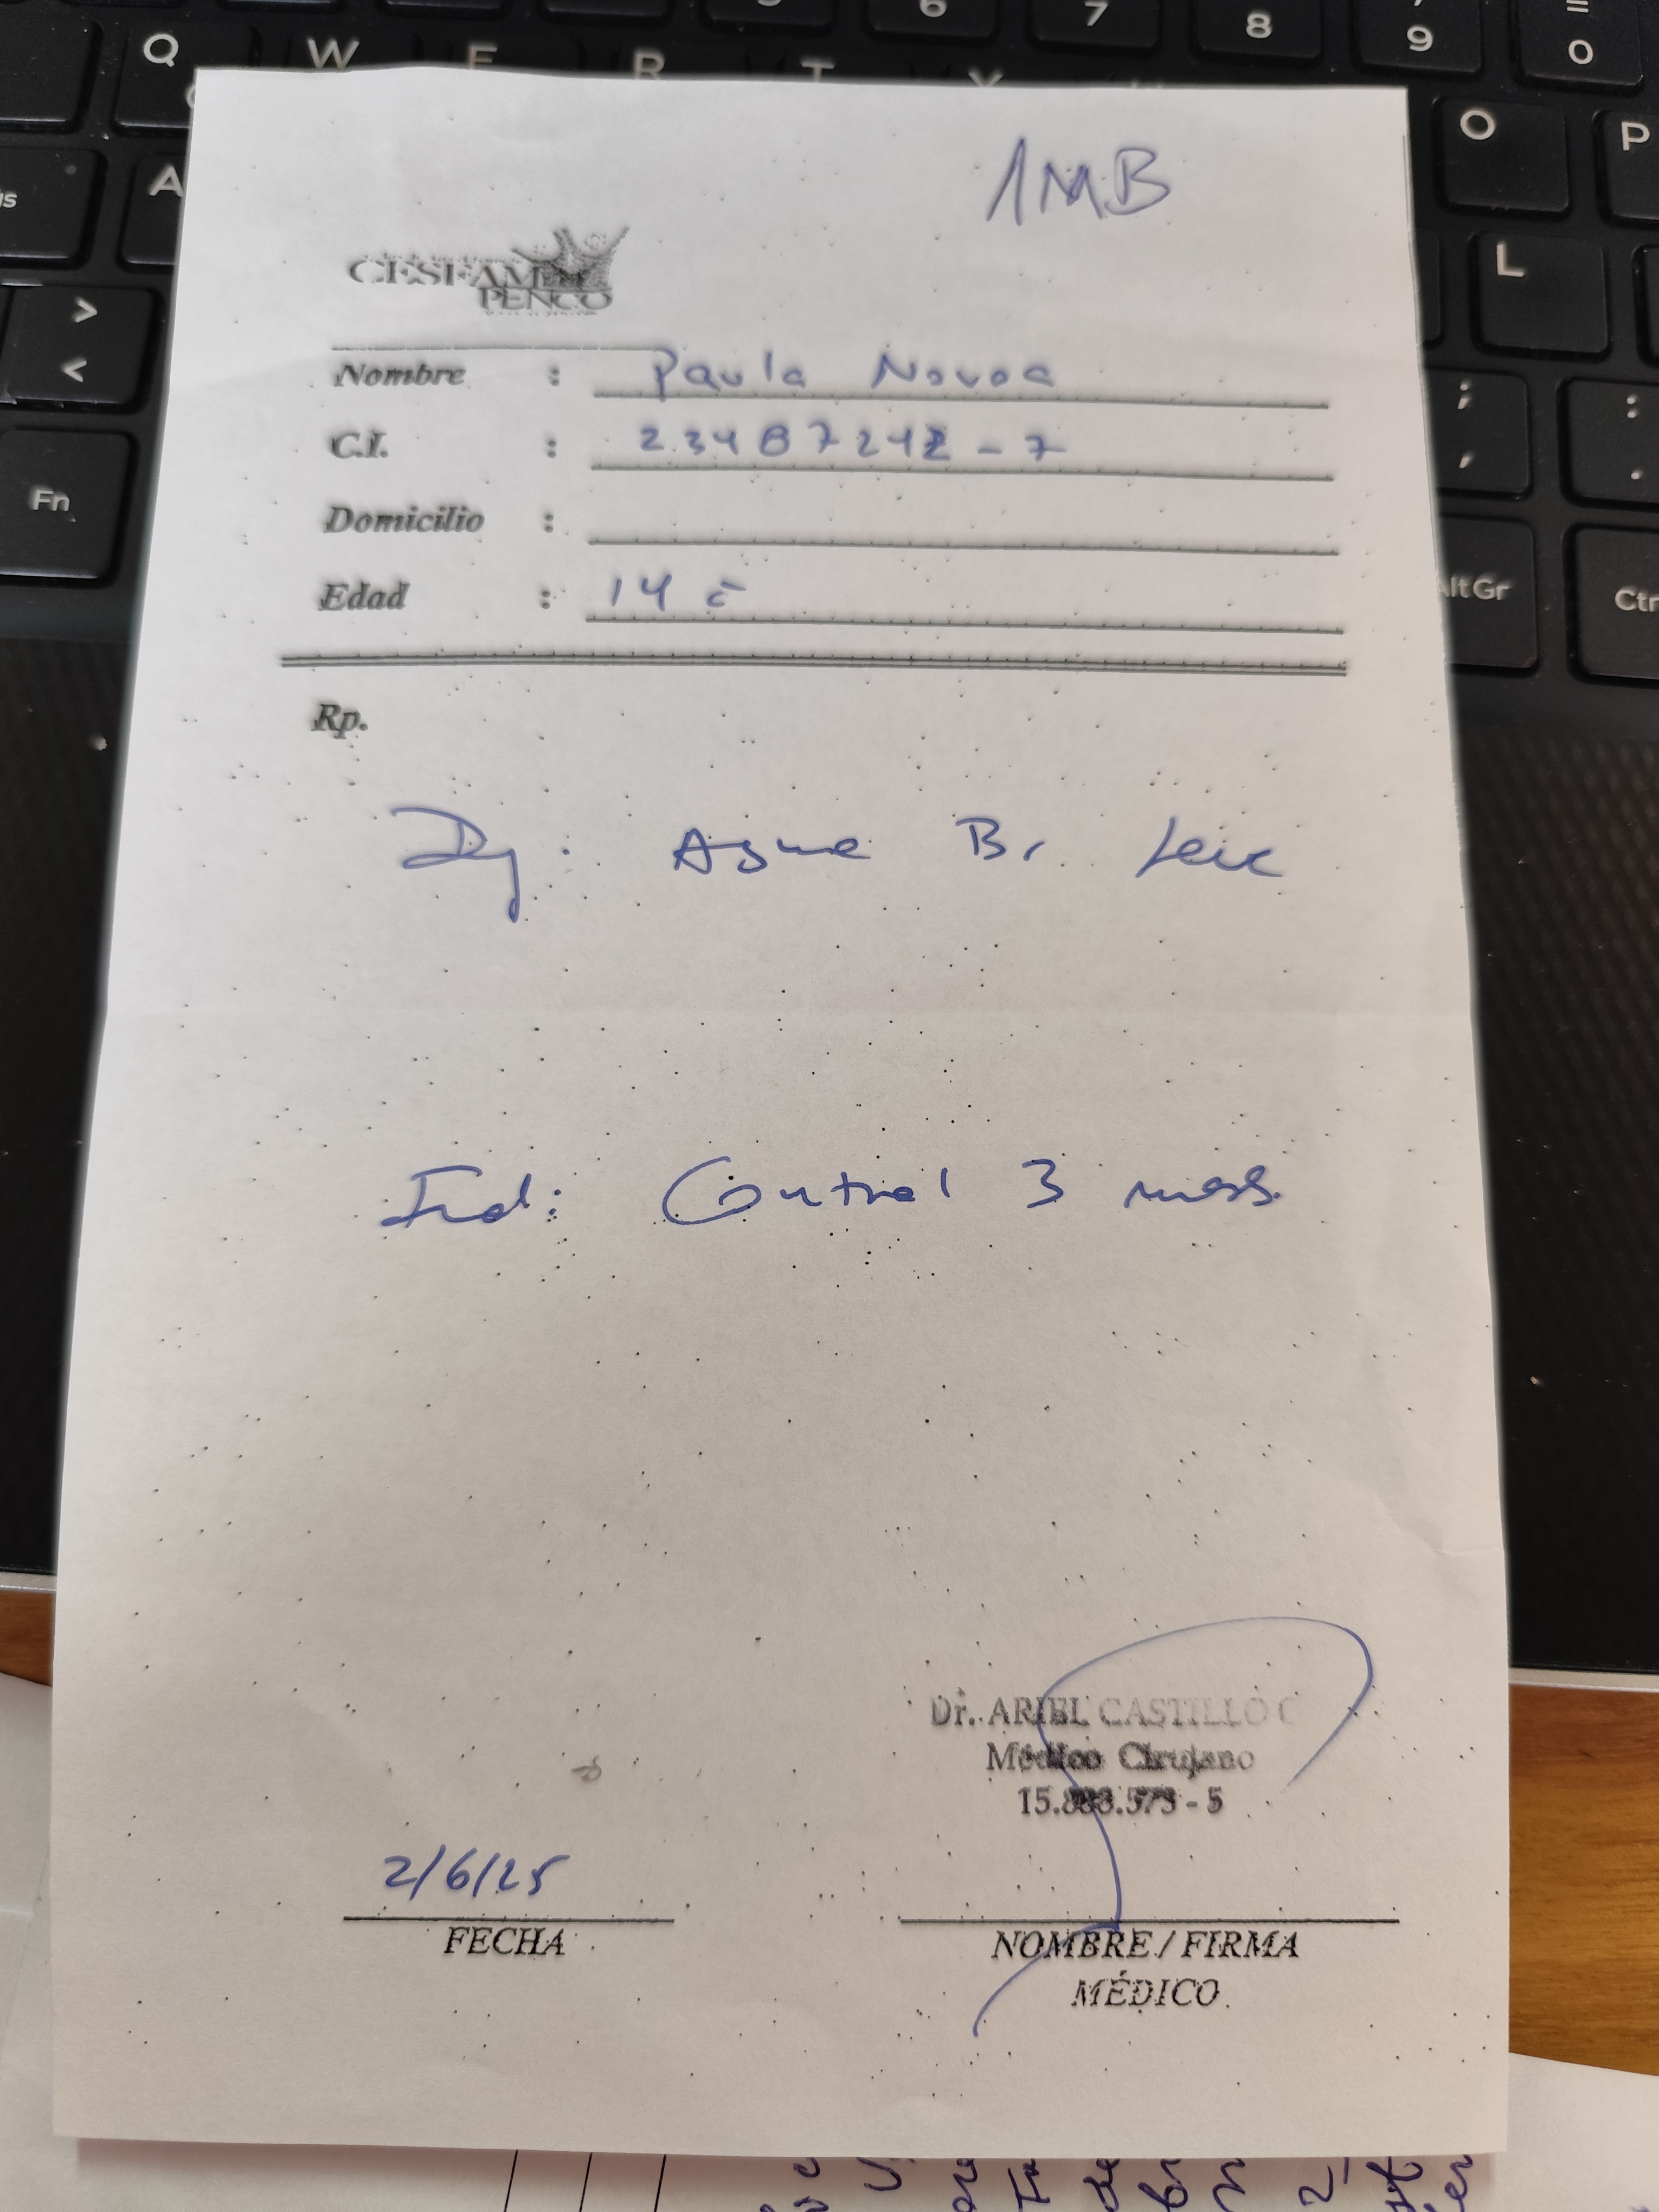 1MB
CESFAM
PENCO
Nombre : Paula Novoa
C.I. : 23487242-7
Domicilio :
Edad : 14 a
Rp.
Dg: Asma Br. Leve
Ind: Control 3 meses.
Dr. ARIEL CASTILLO C
Médico Cirujano
2/6/25
FECHA
NOMBRE / FIRMA
MÉDICO
Q W E R T Y
6 7 8 9 0
A
O P
L
> <
Fn
AltGr
Ctr